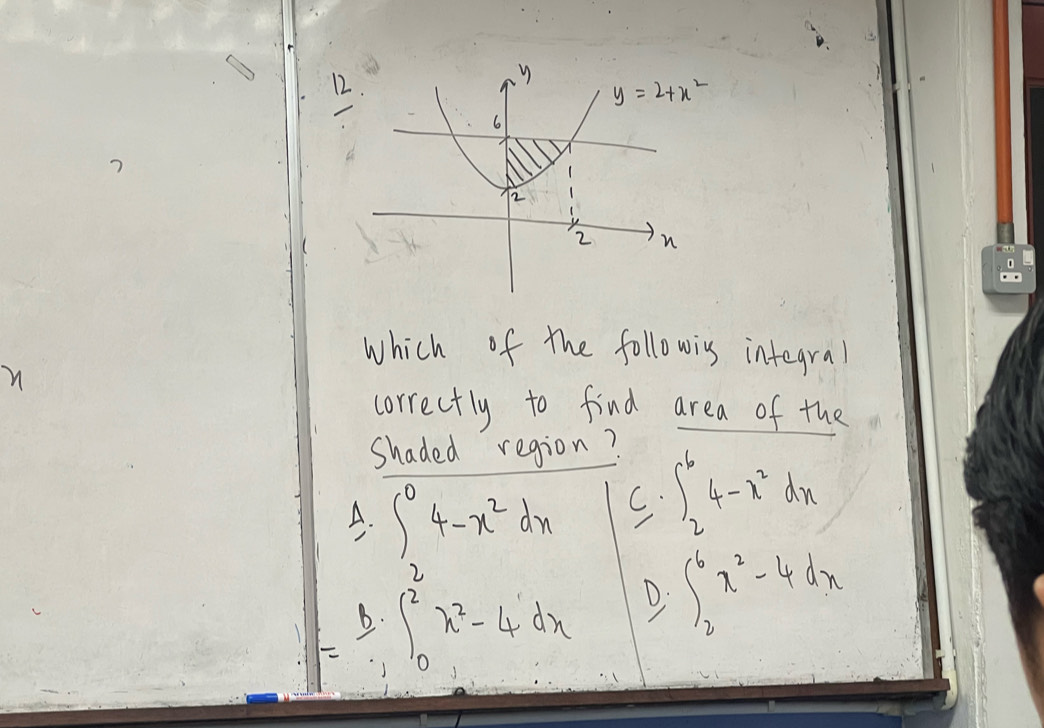 12.
y
y = 2+x²
6
2
2
x
Which of the followig integral
correctly to find area of the
shaded region?
A. ∫₂⁰ 4-x² dx
B. ∫₀² x²-4 dx
C. ∫₂⁶ 4-x² dx
D. ∫₂⁶ x²-4 dx
x